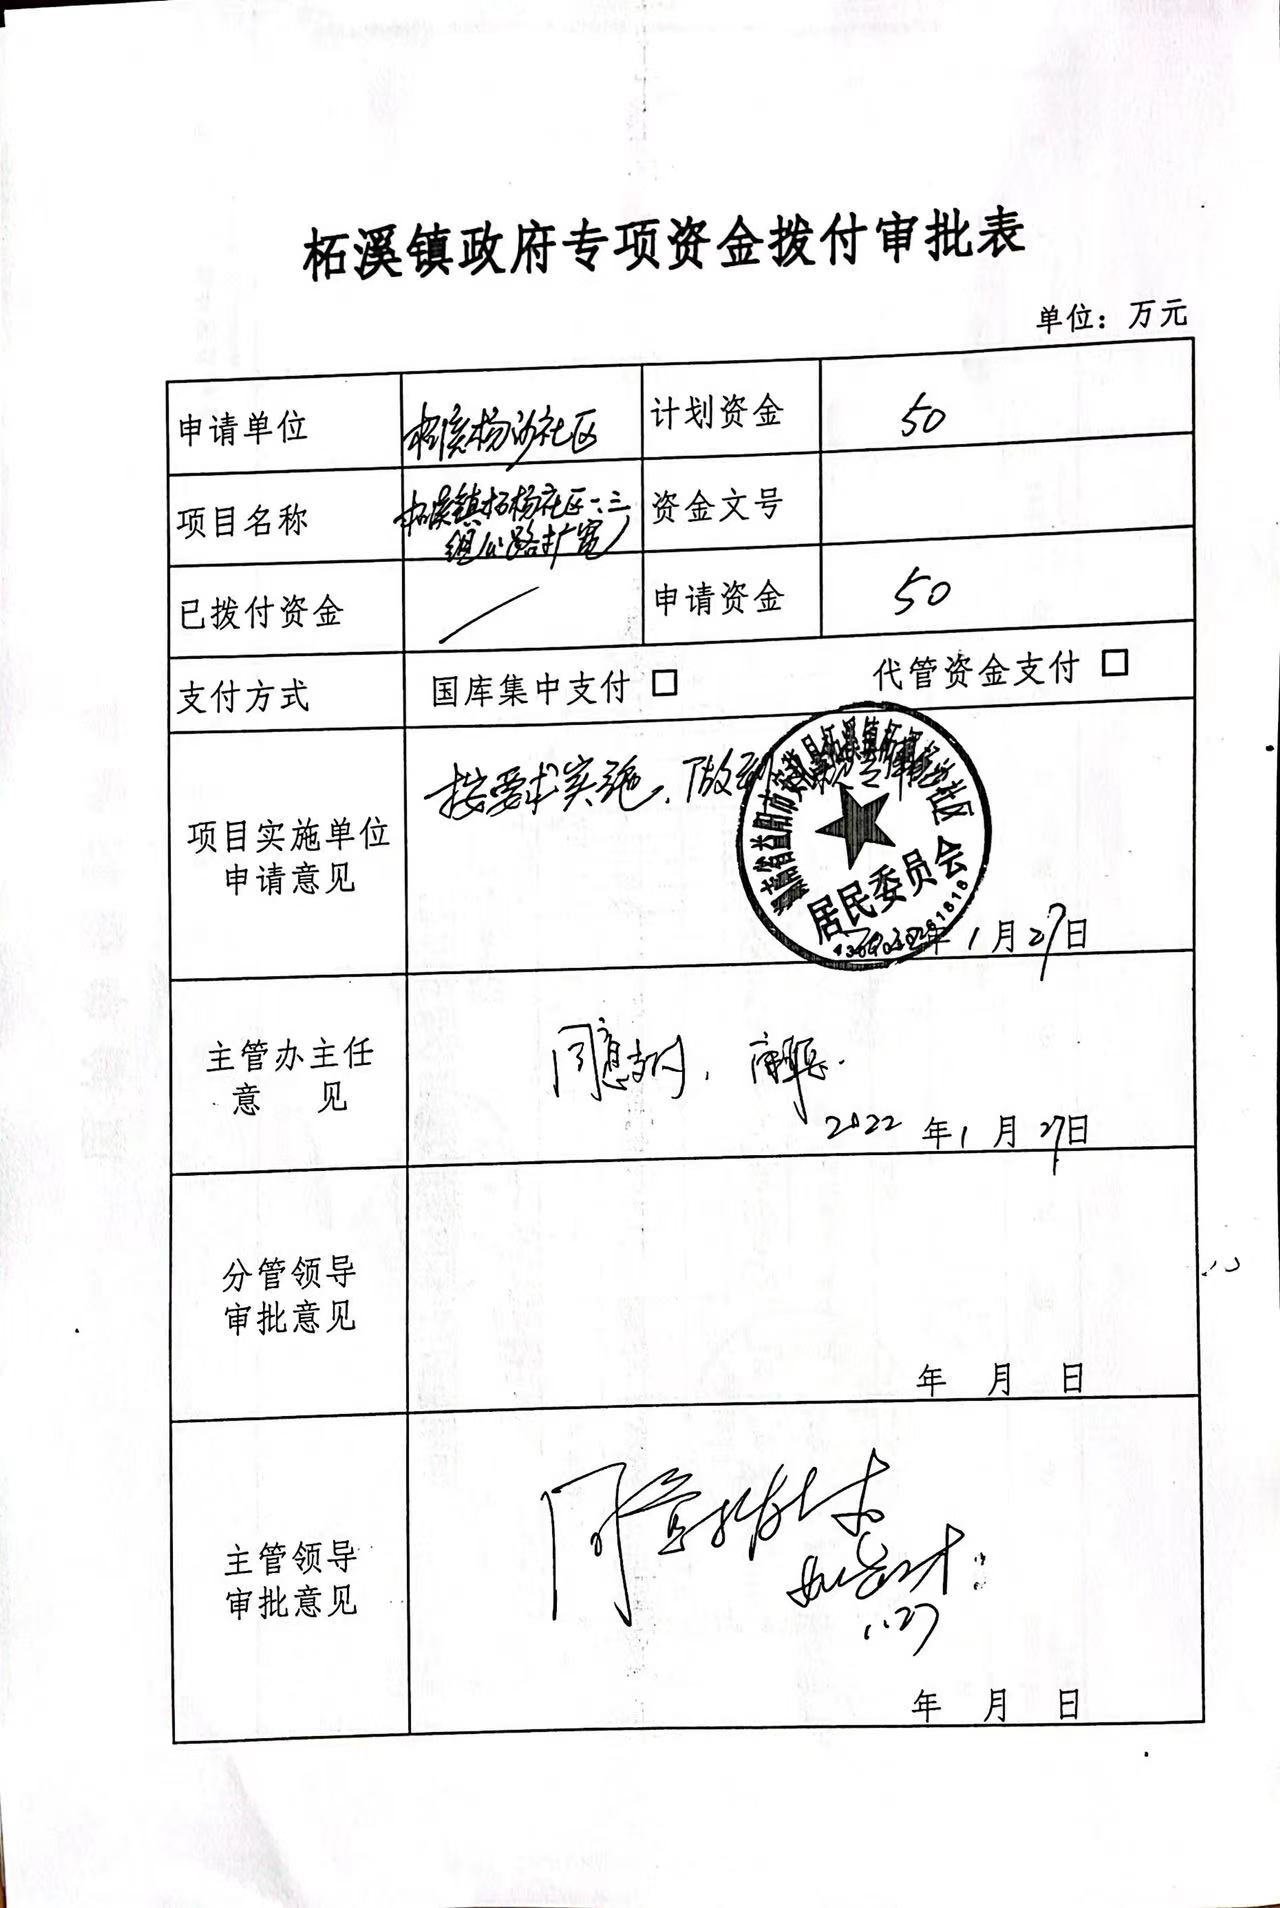 柘溪镇政府专项资金拨付审批表
单位：万元
申请单位 社区 计划资金 50
项目名称 柘溪镇柘杨社区一、三 资金文号
组公路扩宽
已拨付资金 / 申请资金 50
支付方式 国库集中支付 □ 代管资金支付 □
按要求实施，做到
项目实施单位
申请意见
居民委员会
年 1 月 27 日
主管办主任
意 见
同意支付，
2022 年 1 月 27 日
分管领导
审批意见
年 月 日
同意拨付
主管领导
审批意见
1.27
年 月 日